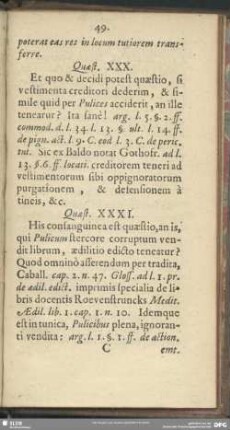 49.
poterat eas res in locum tutiorem trans-
ferre.
Quæst. XXX.
Et quo & decidi potest quæstio, si
vestimenta creditori dederim, & si-
mile quid per Pulices acciderit, an ille
teneatur? Ita sanè! arg. l. 5. §. 2. ff.
commod. d. l. 34. l. 13. §. ult. l. 14. ff.
de pign. act. l. 9. C. eod l. 3. C. de peric.
tut. Sic ex Baldo notat Gothofr. ad l.
13. §. 6. ff. locati. creditorem teneri ad
vestimentorum sibi oppignoratorum
purgationem, & defensionem à
tineis, &c.
Quæst. XXXI.
His consanguinea est quæstio, an is,
qui Pulicum stercore corruptum ven-
dit librum, ædilitio edicto teneatur?
Quod omninò asserendum per tradita,
Caball. cap. 2. n. 47. Gloss. ad l. 1. pr.
de ædil. edict. imprimis specialia de li-
bris docentis Roevenstruncks Medit.
Ædil. lib. 1. cap. 1. n. 10. Idemque
est in tunica, Pulicibus plena, ignoran-
ti vendita: arg. l. 1. §. 1. ff. de action.
C emt.